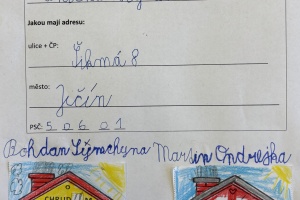 Jakou mají adresu:
ulice + ČP:
Šikmá 8
město:
Jičín
PSČ: 5 0 6 0 1
Bohdan Martin Ondrejka
CHRUDIM